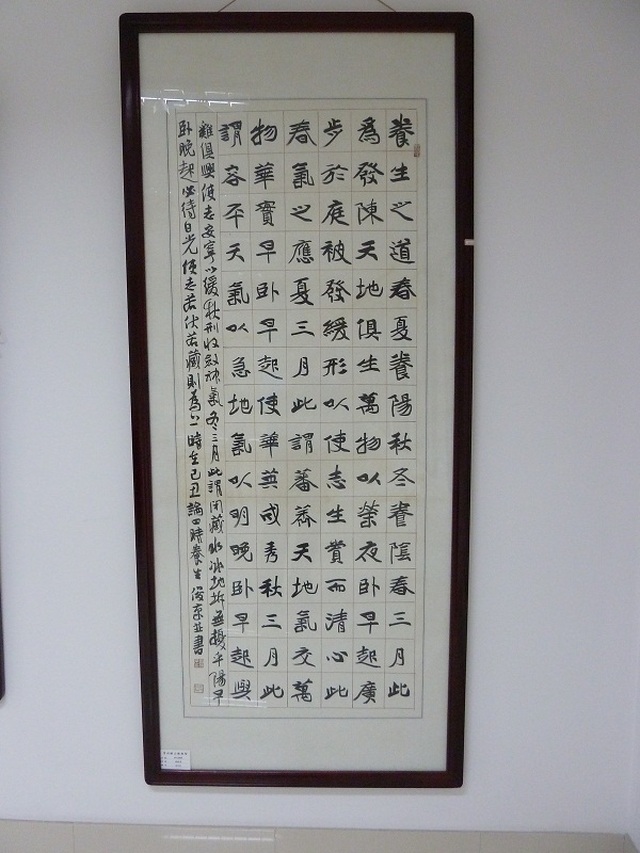 養生之道春夏養陽秋冬養陰春三月此
為發陳天地俱生萬物以榮夜卧早起廣
步於庭被發緩形以使志生賞而清心此
春氣之應夏三月此謂蕃秀天地氣交萬
物華實早卧早起使華英成秀秋三月此
謂容平天氣以急地氣以明晚卧早起與
雞俱興使志安寧以緩秋刑收斂神氣冬三月此謂閉藏水冰地坼無擾乎陽早
卧晚起必待日光使志若伏若藏則為上時在己丑論四時養生俊京並書